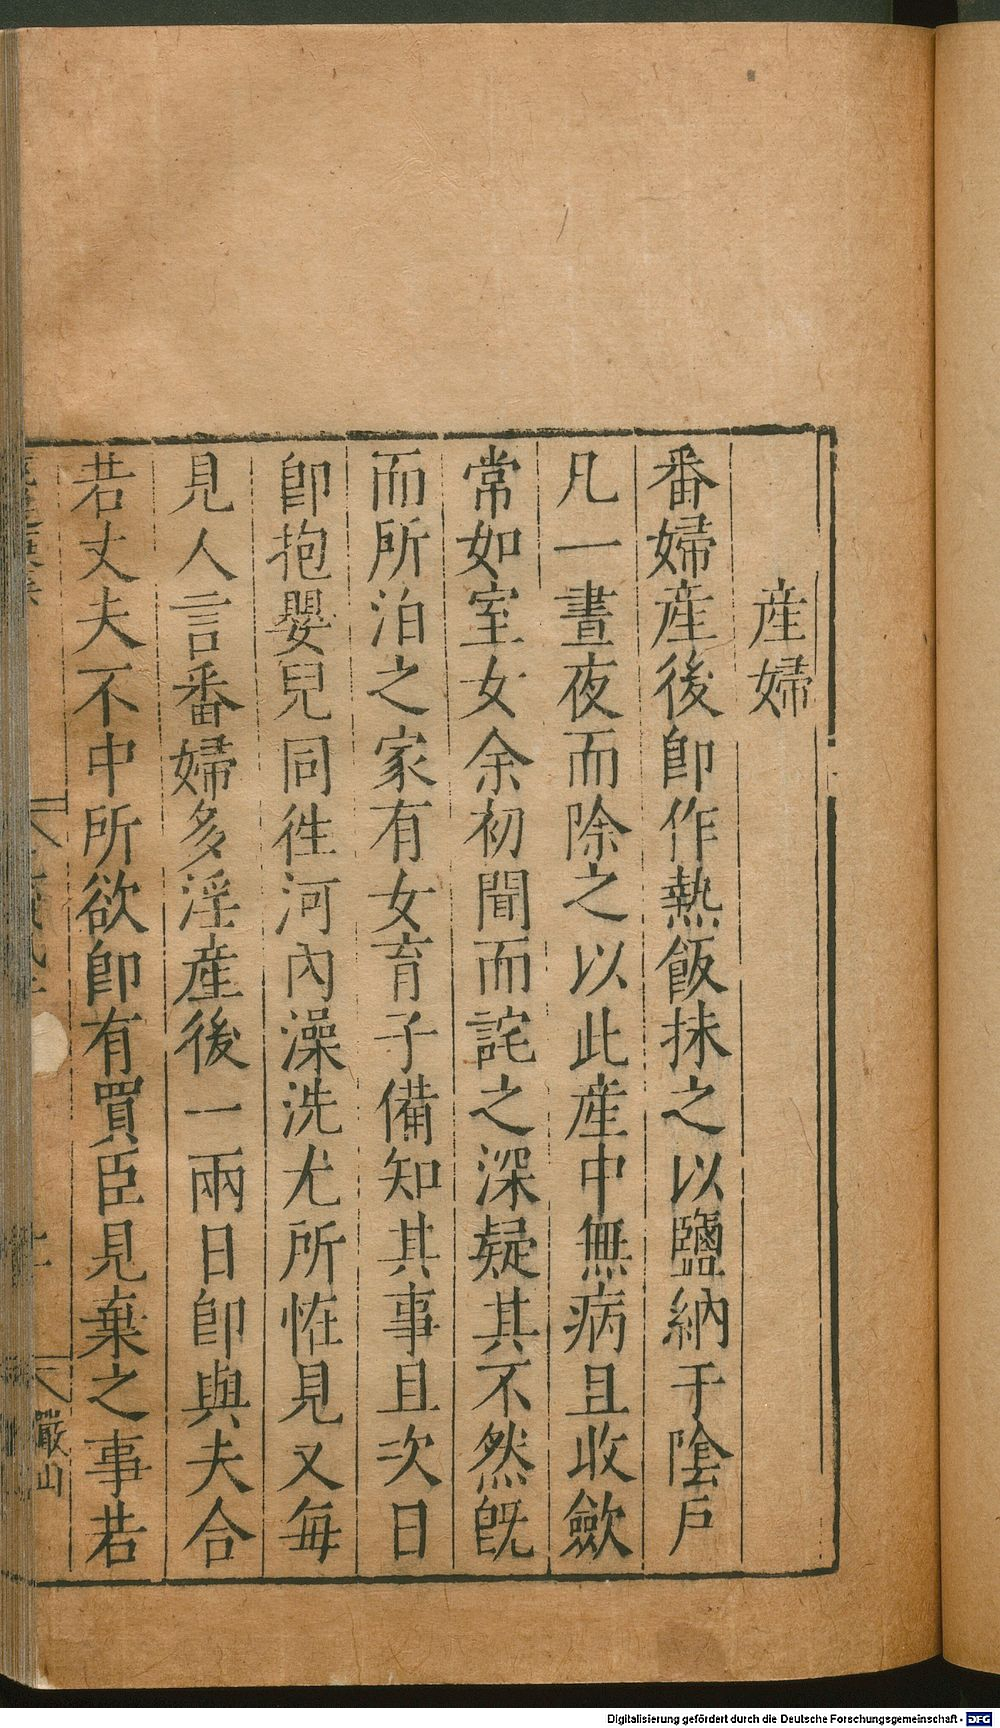 産婦
番婦産後卽作熱飯抹之以鹽納于陰戶
凡一晝夜而除之以此産中無病且收斂
常如室女余初聞而詫之深疑其不然旣
而所泊之家有女育子備知其事且次日
卽抱嬰兒同徃河內澡洗尤所恠見又每
見人言番婦多淫産後一兩日卽與夫合
若丈夫不中所欲卽有買臣見棄之事若
巖山
Digitalisierung gefördert durch die Deutsche Forschungsgemeinschaft - DFG